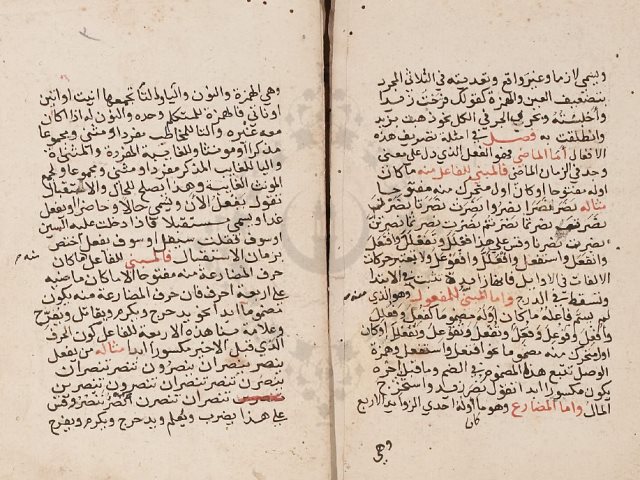 ويسمي لازما وغير واقع وتعديته في الثلاثي المجرد
بتضعيف العين والهمزة كقولك فرحت زيدا
وأجلسته وبحرف الجر في الكل نحو ذهبت بزيد
وانطلقت به فصل في امثلة تصريف هذه
الافعال أما الماضي فهو الفعل الذي دل علي معني
وجد في الزمان الماضي فالمبني للفاعل منه ما كان
اوله مفتوحا او كان اول متحرك منه مفتوحا
مثاله نصر نصرا نصروا نصرت نصرتا نصرن
نصرت نصرتما نصرتم نصرت نصرتما نصرتن
نصرت نصرنا وقس علي هذا افعل وفعل
وانفعل واستفعل وافعوعل ولا يعتبر حركات
الالفات في الاوايل فانها زايدة تثبت في الابتدا
وتسقط في الدرج واما المبني للمفعول وهو الذي
لم يسم فاعله فما كان اوله مضموما كفعل وفعلل
وأفعل وفوعل وفعل وتفعل وتفوعل وتفعلل او كان
اول متحرك منه مضموما نحو افتعل واستفعل وهمزة
الوصل تتبع هذا المضموم في الضم وما قبل اخره
يكون مكسورا ابدا تقول نصر زيد واستخرج
المال واما المضارع وهو ما اوله احدي الزوايد الاربع
وهي
وهي الهمزة والنون والتا واليا تجمعها انيت او اتين
او نأتي فالهمزة للمتكلم وحده والنون له اذا كان
معه غيره والتا للمخاطب مفردا او مثني ومجموعا
مذكرا او مونثا وللغايبة المفردة والمثناة
واليا للغايب المذكر مفردا ومثني ومجموعا ولجمع
المونث الغايبة وهذا يصلح للحال والاستقبال
تقول يفعل الان ويسمي حالا وحاضرا ويفعل
غدا ويسمي مستقبلا فاذا دخلت عليه السين
او سوف فقلت سيفعل او سوف يفعل اختص
بزمان الاستقبال فالمبني للفاعل ما كان
منه
حرف المضارعة منه مفتوحا الا ما كان ماضيه
علي اربعة احرف فان حرف المضارعة منه يكون
مضموما ابدا نحو يدحرج ويكرم ويقاتل ويفرح
وعلامة بنا هذه الاربعة للفاعل كون الحرف
الذي قبل الاخير مكسورا ابدا مثاله من يفعل
ينصر ينصران ينصرون تنصر تنصران
ينصرن تنصر تنصران تنصرون تنصرين
تنصران تنصرن انصر ننصر وقس
علي هذا يضرب ويعلم ويدحرج ويكرم ويفرح